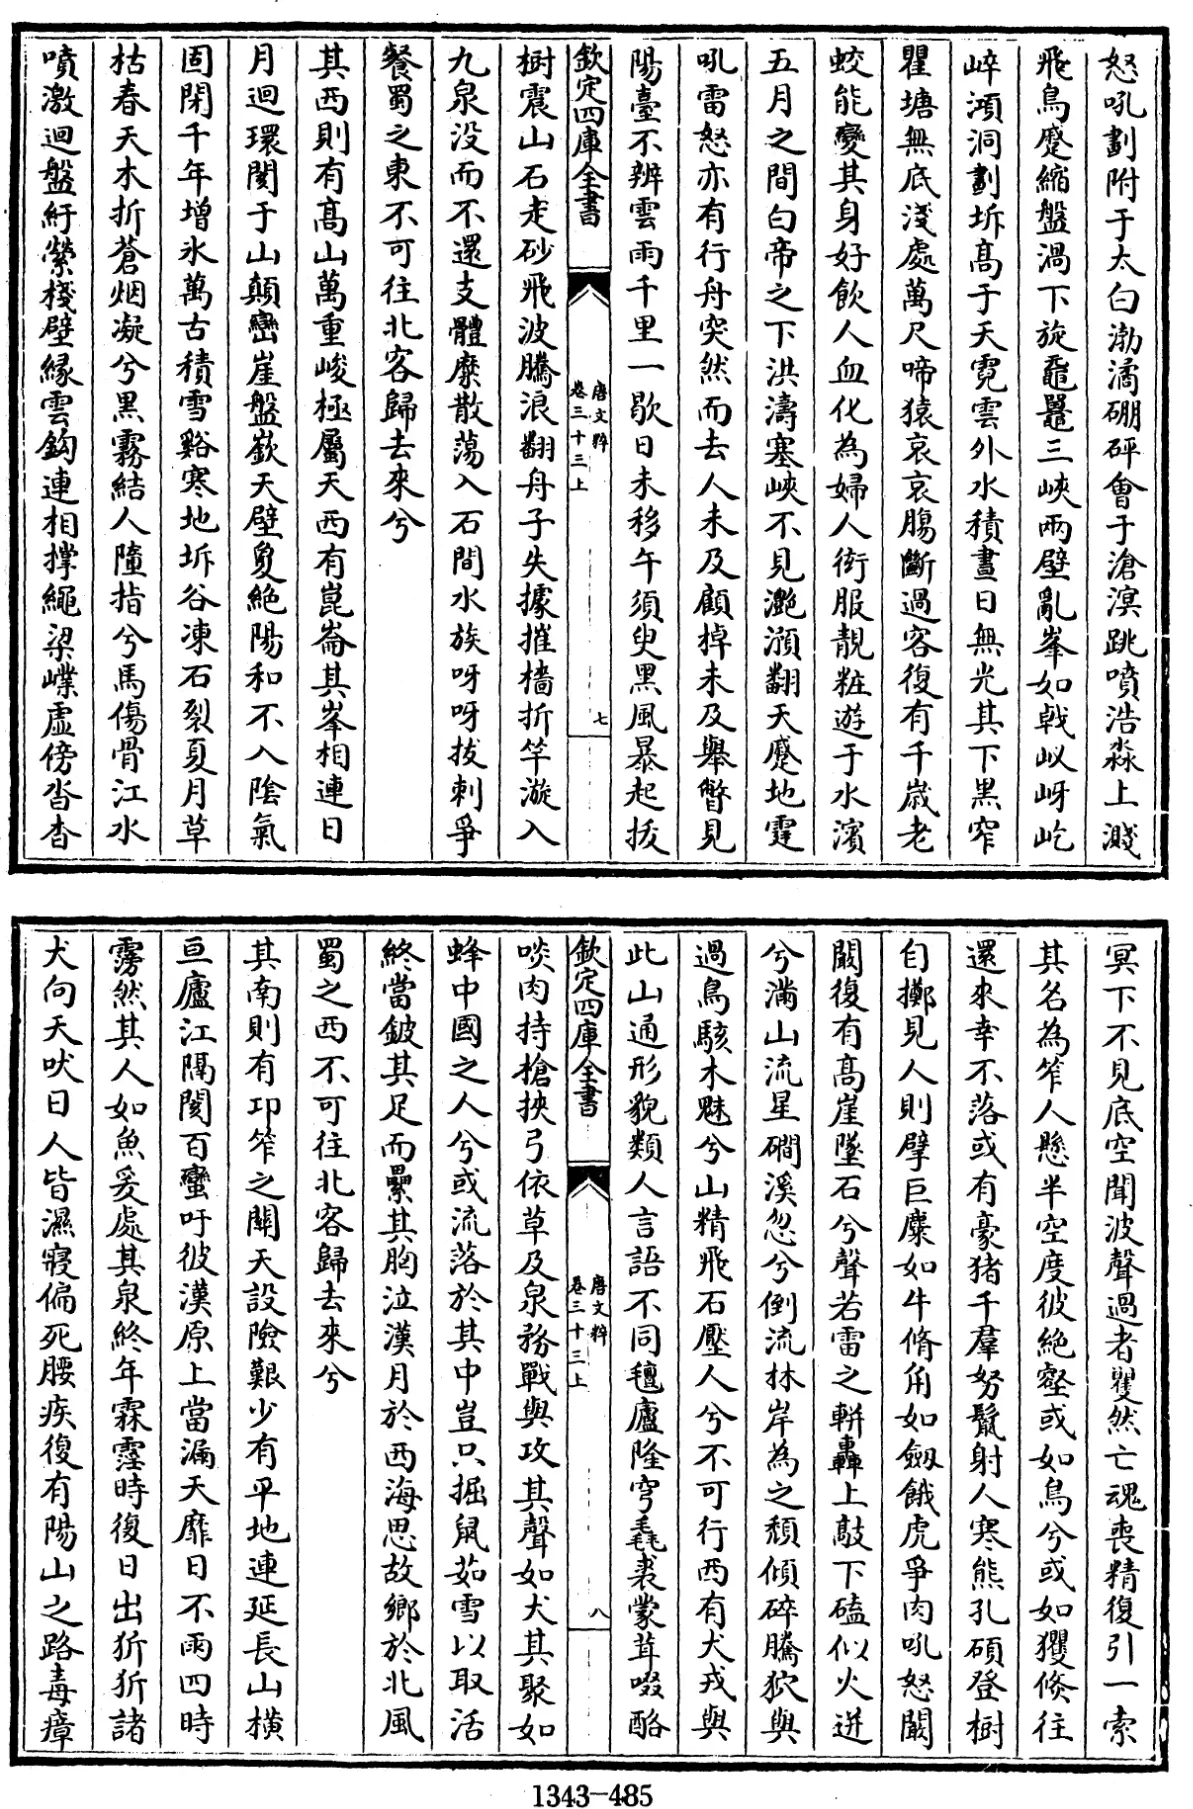 怒吼劃附于太白渤潏硼砰會于滄溟跳噴浩淼上濺
飛鳥蹙縮盤渦下旋黿鼉三峽兩壁亂峯如戟㠖岈屹
崪澒洞劃坼髙于天霓雲外水積晝日無光其下黑窄
瞿塘無底淺處萬尺啼猿哀哀腸斷過客復有千嵗老
蛟能變其身好飲人血化為婦人衒服靚粧遊于水濱
五月之間白帝之下洪濤塞峽不見灔澦翻天蹙地霆
吼雷怒亦有行舟突然而去人未及顧棹未及舉瞥見
陽臺不辨雲雨千里一歇日未移午須臾黒風暴起拔
欽定四庫全書
唐文粹
卷三十三上
七
樹震山石走砂飛波騰浪翻舟子失據摧檣折竿漩入
九泉没而不還支體糜散蕩入石間水族呀呀拔刺爭
餐蜀之東不可往北客歸去來兮
其西則有髙山萬重峻極屬天西有崑崙其峯相連日
月迴環閡于山顛巒崖盤嶔天壁夐絶陽和不入陰氣
固閉千年增氷萬古積雪谿寒地坼谷凍石裂夏月草
枯春天木折蒼烟凝兮黒霧結人墮指兮馬傷骨江水
噴激迴盤紆縈棧壁縁雲鈎連相撑繩梁㠎虚傍沓杳
冥下不見底空聞波聲過者矍然亡魂喪精復引一索
其名為笮人懸半空度彼絶壑或如鳥兮或如玃倐往
還來幸不落或有豪猪千羣努鬛射人寒熊孔碩登樹
自擲見人則擘巨麋如牛脩角如劒餓虎爭肉吼怒闞
闞復有髙崖墜石兮聲若雷之軿轟上敲下磕似火迸
兮滿山流星磵溪忽兮倒流林岸為之頽傾碎騰狖與
過鳥駭木魅兮山精飛石壓人兮不可行西有犬戎與
此山通形貌類人言語不同氊廬隆穹毳裘䝉茸啜酪
欽定四庫全書
唐文粹
卷三十三上
八
啖肉持槍挾弓依草及泉務戰與攻其聲如犬其聚如
蜂中國之人兮或流落於其中豈只掘鼠茹雪以取活
終當鈹其足而纍其胸泣漢月於西海思故鄉於北風
蜀之西不可往北客歸去來兮
其南則有邛笮之關天設險艱少有平地連延長山横
亘廬江隔閡百蠻吁彼漢原上當漏天靡日不雨四時
霶然其人如魚爰處其泉終年霖霪時復日出狾狾諸
犬向天吠日人皆濕寢偏死腰疾復有陽山之路毒瘴
1343-485